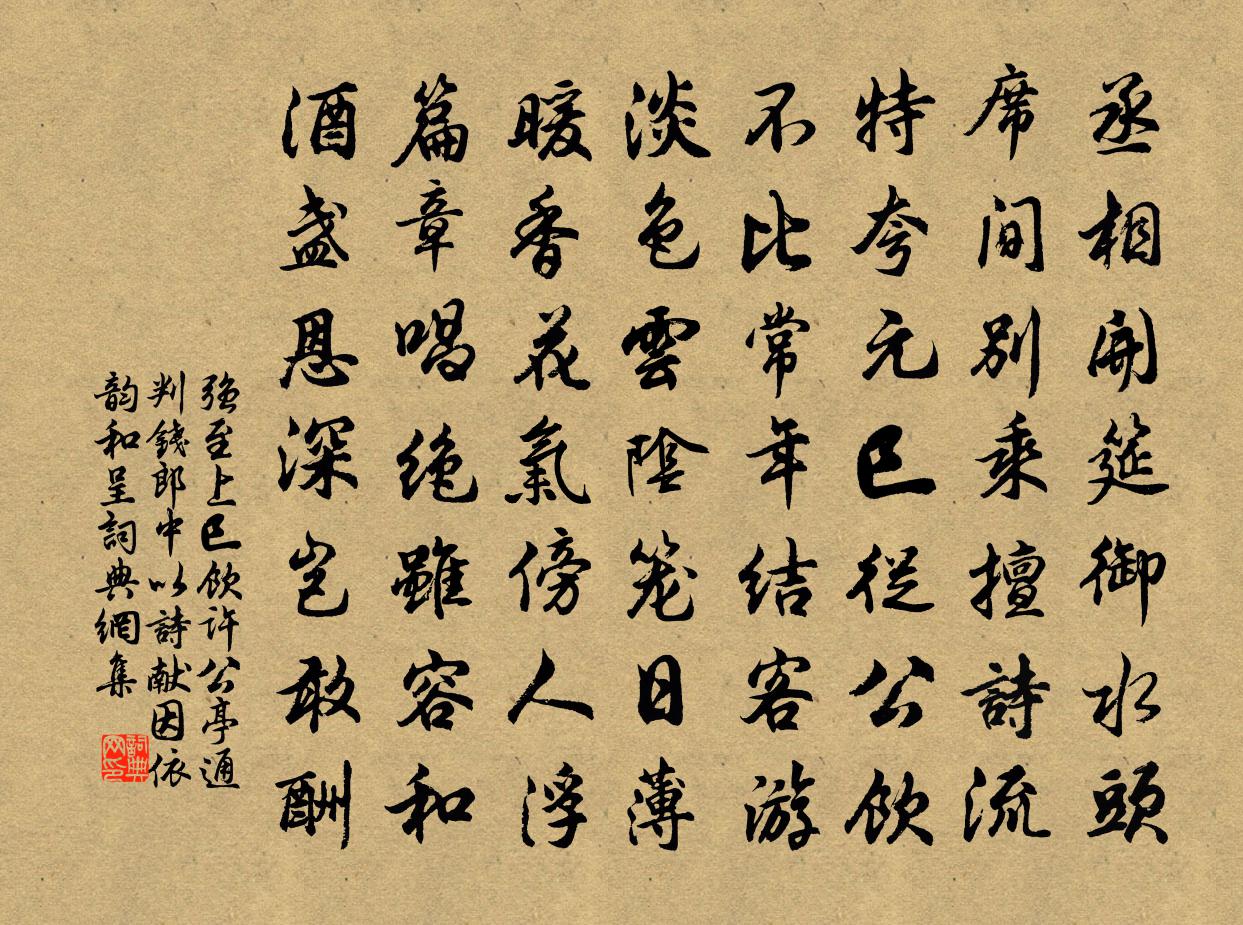 丞相開筵御水頭
席间别乘擅詩流
特夸元巳從公飲
不比常年结客游
淡色雲陰笼日薄
暖香花氣傍人浮
篇章唱绝雖容和
酒盏恩深岂敢酬
强至上巳飲許公亭通
判錢郎中以詩献因依
韵和呈詞典網集
詞典
网印